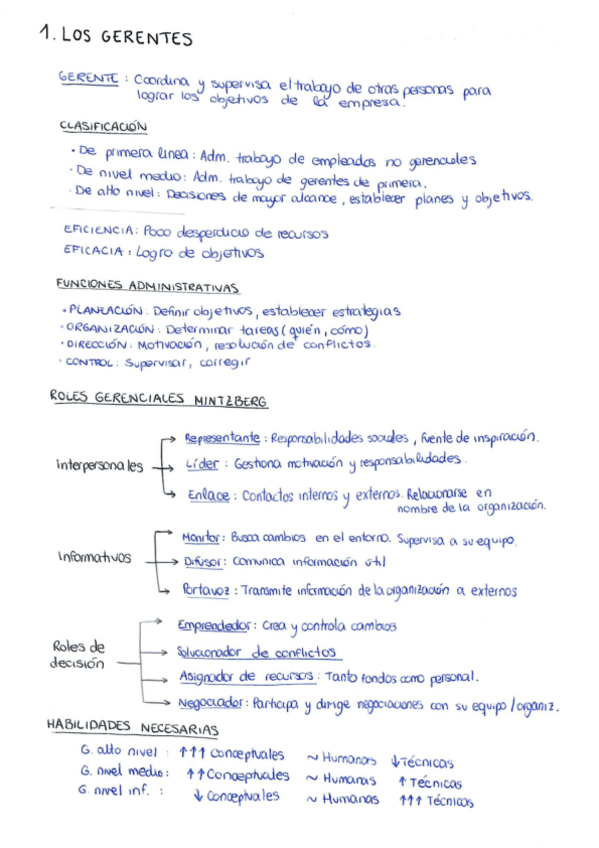 1. LOS GERENTES
GERENTE : Coordina y supervisa el trabajo de otras personas para
lograr los objetivos de la empresa.
CLASIFICACIÓN
· De primera linea : Adm. trabajo de empleados no gerenciales
· De nivel medio : Adm. trabajo de gerentes de primera.
· De alto nivel : Decisiones de mayor alcance, establecer planes y objetivos.
EFICIENCIA : Poco desperdicio de recursos
EFICACIA : Logro de objetivos
FUNCIONES ADMINISTRATIVAS
· PLANEACIÓN : Definir objetivos, establecer estrategias
· ORGANIZACIÓN : Determinar tareas (quién, cómo)
· DIRECCIÓN : Motivación, resolución de conflictos.
· CONTROL : Supervisar, corregir
ROLES GERENCIALES MINTZBERG
Interpersonales
→ Representante : Responsabilidades sociales, fuente de inspiración.
→ Líder : Gestiona motivación y responsabilidades.
→ Enlace : Contactos internos y externos. Relacionarse en
nombre de la organización.
Informativos
→ Monitor : Busca cambios en el entorno. Supervisa a su equipo.
→ Difusor : Comunica información útil
→ Portavoz : Transmite información de la organización a externos
Roles de
decisión
→ Emprendedor : Crea y controla cambios
→ Solucionador de conflictos
→ Asignador de recursos : Tanto fondos como personal.
→ Negociador : Participa y dirige negociaciones con su equipo / organiz.
HABILIDADES NECESARIAS
G. alto nivel : ↑↑↑ Conceptuales ~ Humanas ↓ Técnicas
G. nivel medio : ↑↑ Conceptuales ~ Humanas ↑ Técnicas
G. nivel inf. : ↓ Conceptuales ~ Humanas ↑↑↑ Técnicas